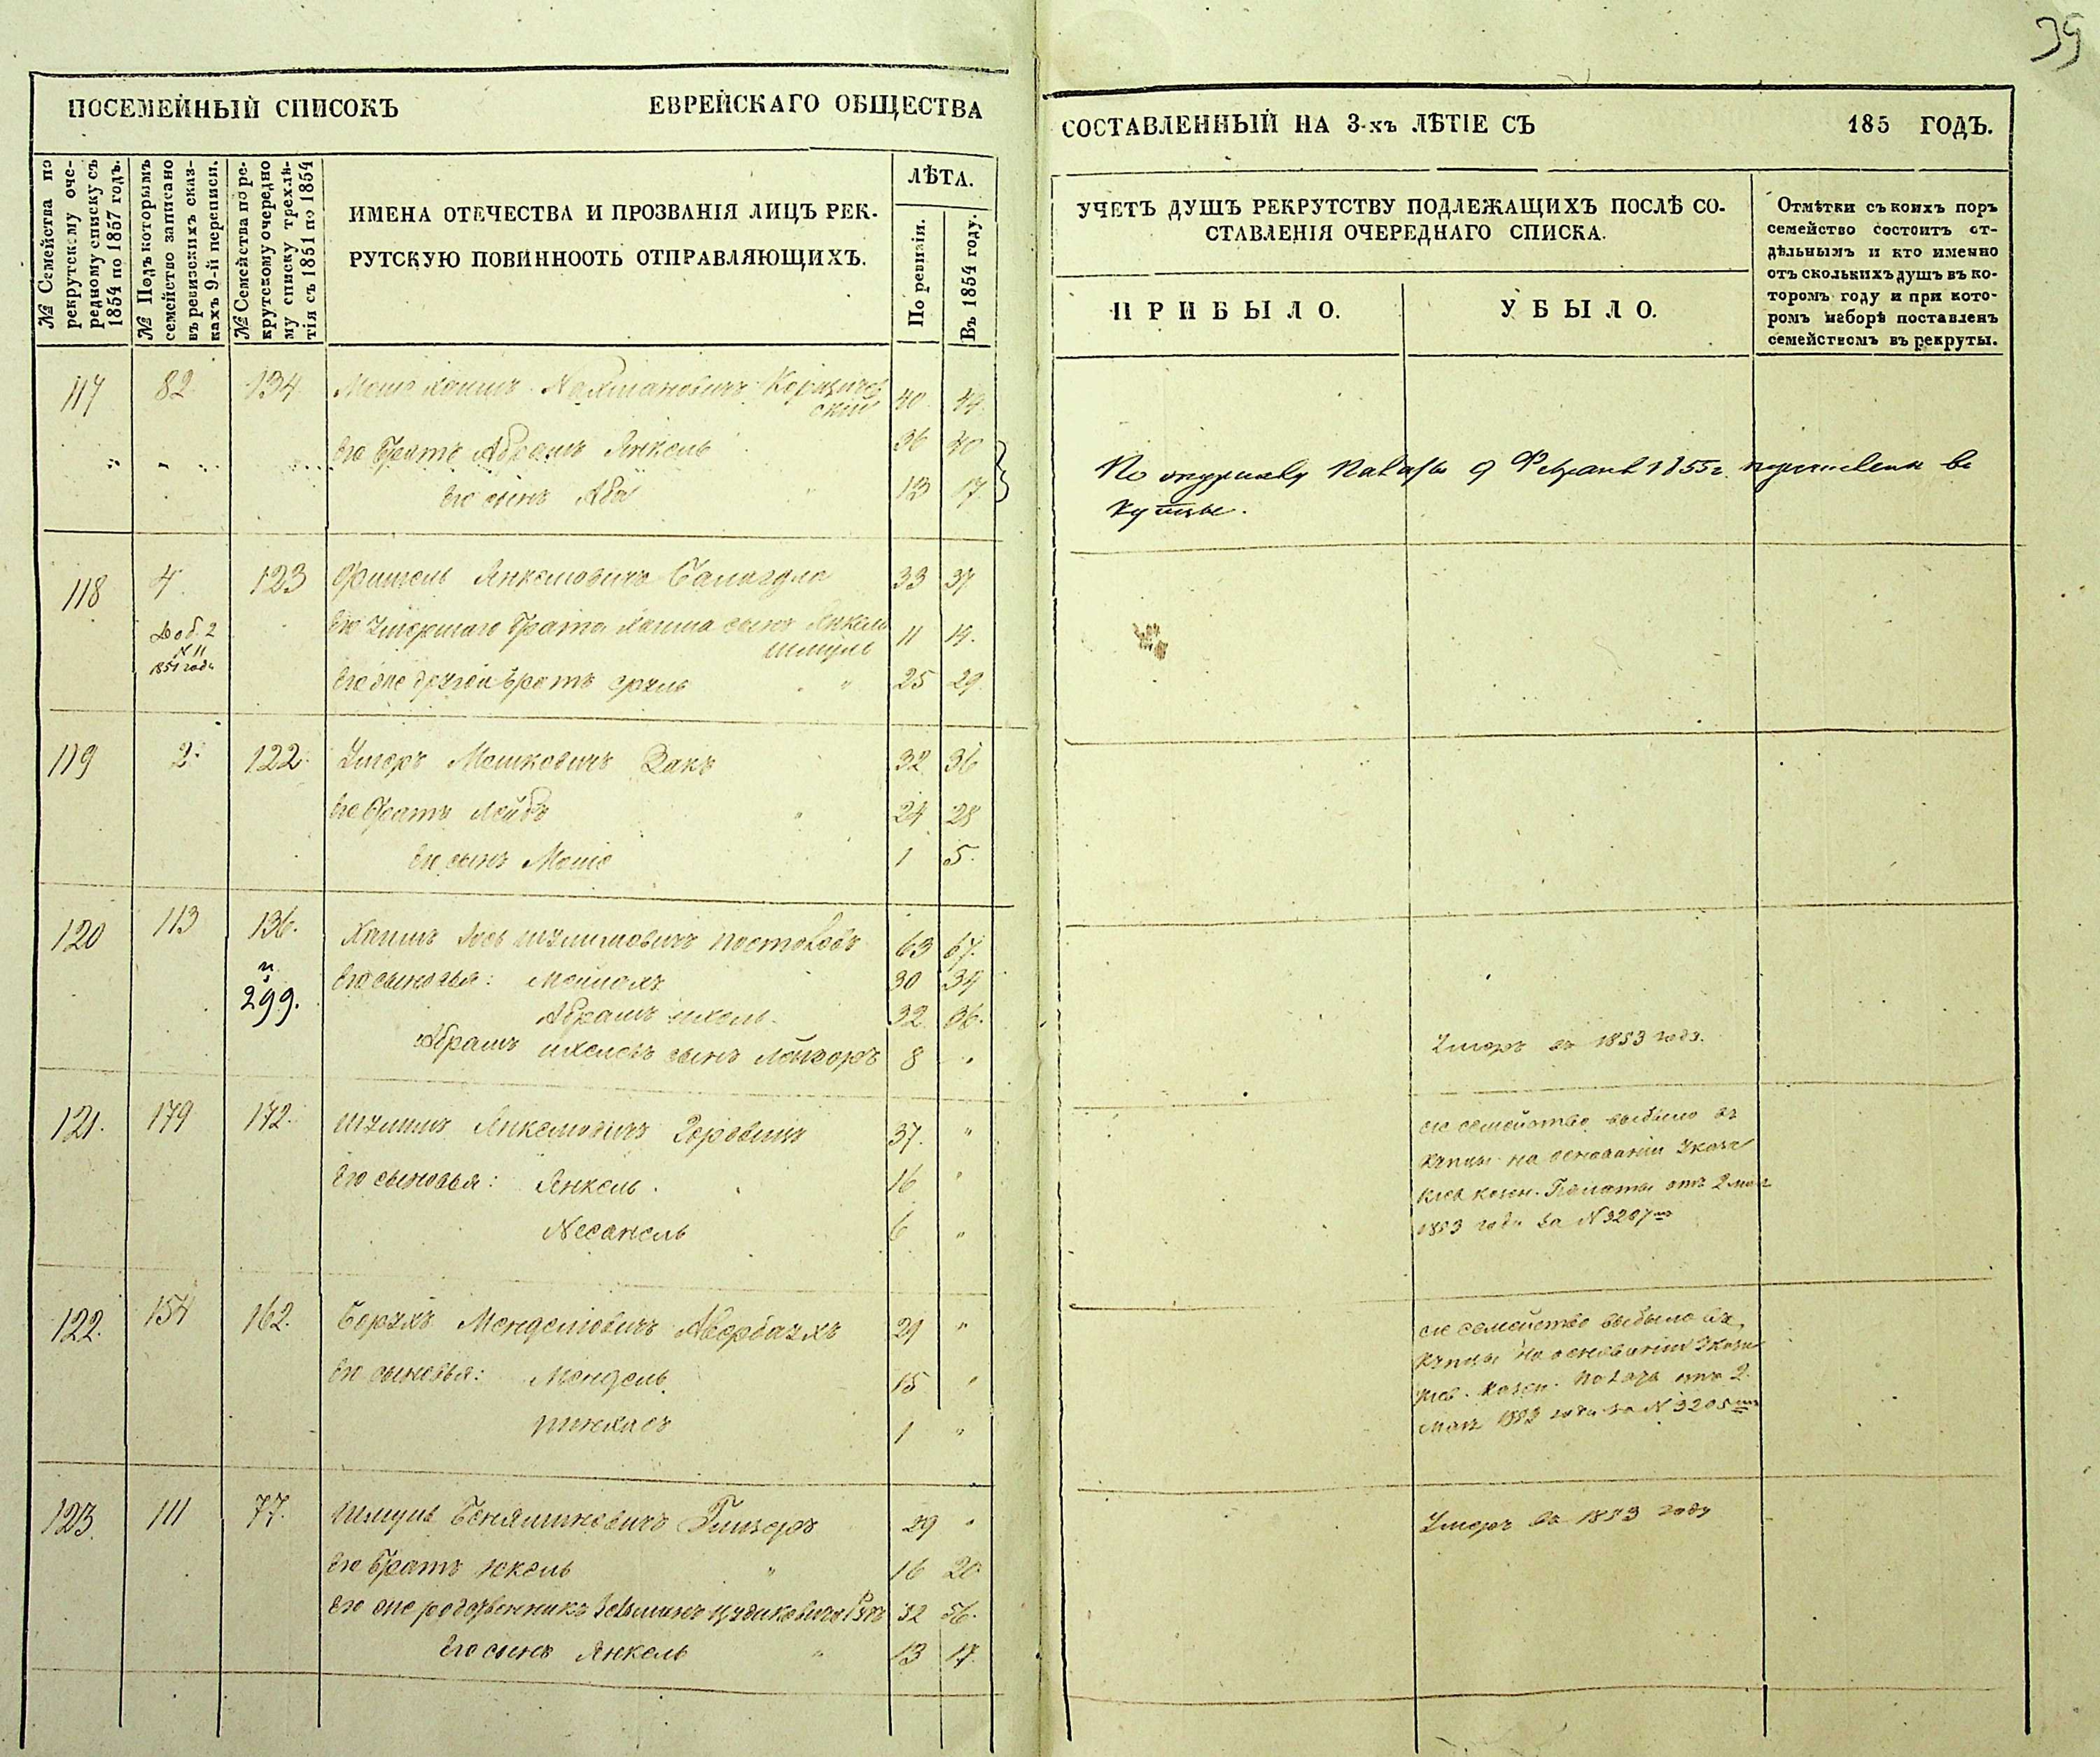 39
ПОСЕМЕЙНЫЙ СПИСОКЪ ЕВРЕЙСКАГО ОБЩЕСТВА
СОСТАВЛЕННЫЙ НА 3-хъ ЛѢТІЕ СЪ 185 ГОДЪ.
№ Семейства по
рекрутскому оче-
редному списку съ
1854 по 1857 годъ.
№ Подъ которымъ
семейство записано
въ ревизскихъ сказ-
кахъ 9-й переписи.
№ Семейства по ре-
крутскому очередно
му списку трехлѣ-
тія съ 1851 по 1854
ИМЕНА ОТЕЧЕСТВА И ПРОЗВАНІЯ ЛИЦЪ РЕК-
РУТСКУЮ ПОВИННООТЬ ОТПРАВЛЯЮЩИХЪ.
ЛѢТА.
По ревизіи.
Въ 1854 году.
УЧЕТЪ ДУШЪ РЕКРУТСТВУ ПОДЛЕЖАЩИХЪ ПОСЛѢ СО-
СТАВЛЕНІЯ ОЧЕРЕДНАГО СПИСКА.
ПРИБЫЛО.
УБЫЛО.
Отмѣтки съ коихъ поръ
семейство состоитъ от-
дѣльнымъ и кто именно
отъ сколькихъ душъ въ ко-
торомъ году и при кото-
ромъ наборѣ поставленъ
семействомъ въ рекруты.
117 82 134 Мошко Хаимъ Нахмановичъ 40 44
его братъ Абрамъ Янкель 36 40
его сынъ Аба 13 17
По 9 1855 г. въ
купцы.
118 4 123 Фишель Янкелевичъ Балагула 33 37
Доб. 2
№ 11
1851 года
его умершаго брата Хаима сынъ Янкель
Шмуль 11 14.
его же другой братъ Сруль 25 29
119 2. 122. Мошковичъ Закъ 32 36
его братъ Лейба 24 28
его сынъ Моше 1 5.
120 113 136. Хаимъ Шулимовичъ 63 67.
и
299.
его сыновья: 30 34
Абрамъ 32 36.
Абрамъ сынъ 8 " Умеръ въ 1853 году.
121. 179 172. Шулимъ Янкелевичъ Горовицъ 37. "
его сыновья: Янкель 16 "
Несанель 6 "
сіе семейство выбыло въ
купцы на основаніи Указа
Кіев. казен. Палаты отъ 2 мая
1853 года за № 3207
122. 154 162. Борухъ Менделевичъ Авербахъ 29 "
его сыновья: Мендель 15 "
Пинхасъ 1 "
сіе семейство выбыло въ
купцы на основаніи Указа
Кіев. казен. Палаты отъ 2
мая 1853 года за № 3205
123. 111 77. Шмуль Беняминовичъ 29 " Умеръ въ 1853 году
его братъ 16 20
его же родственникъ 52 56.
его сынъ Янкель 13 17.